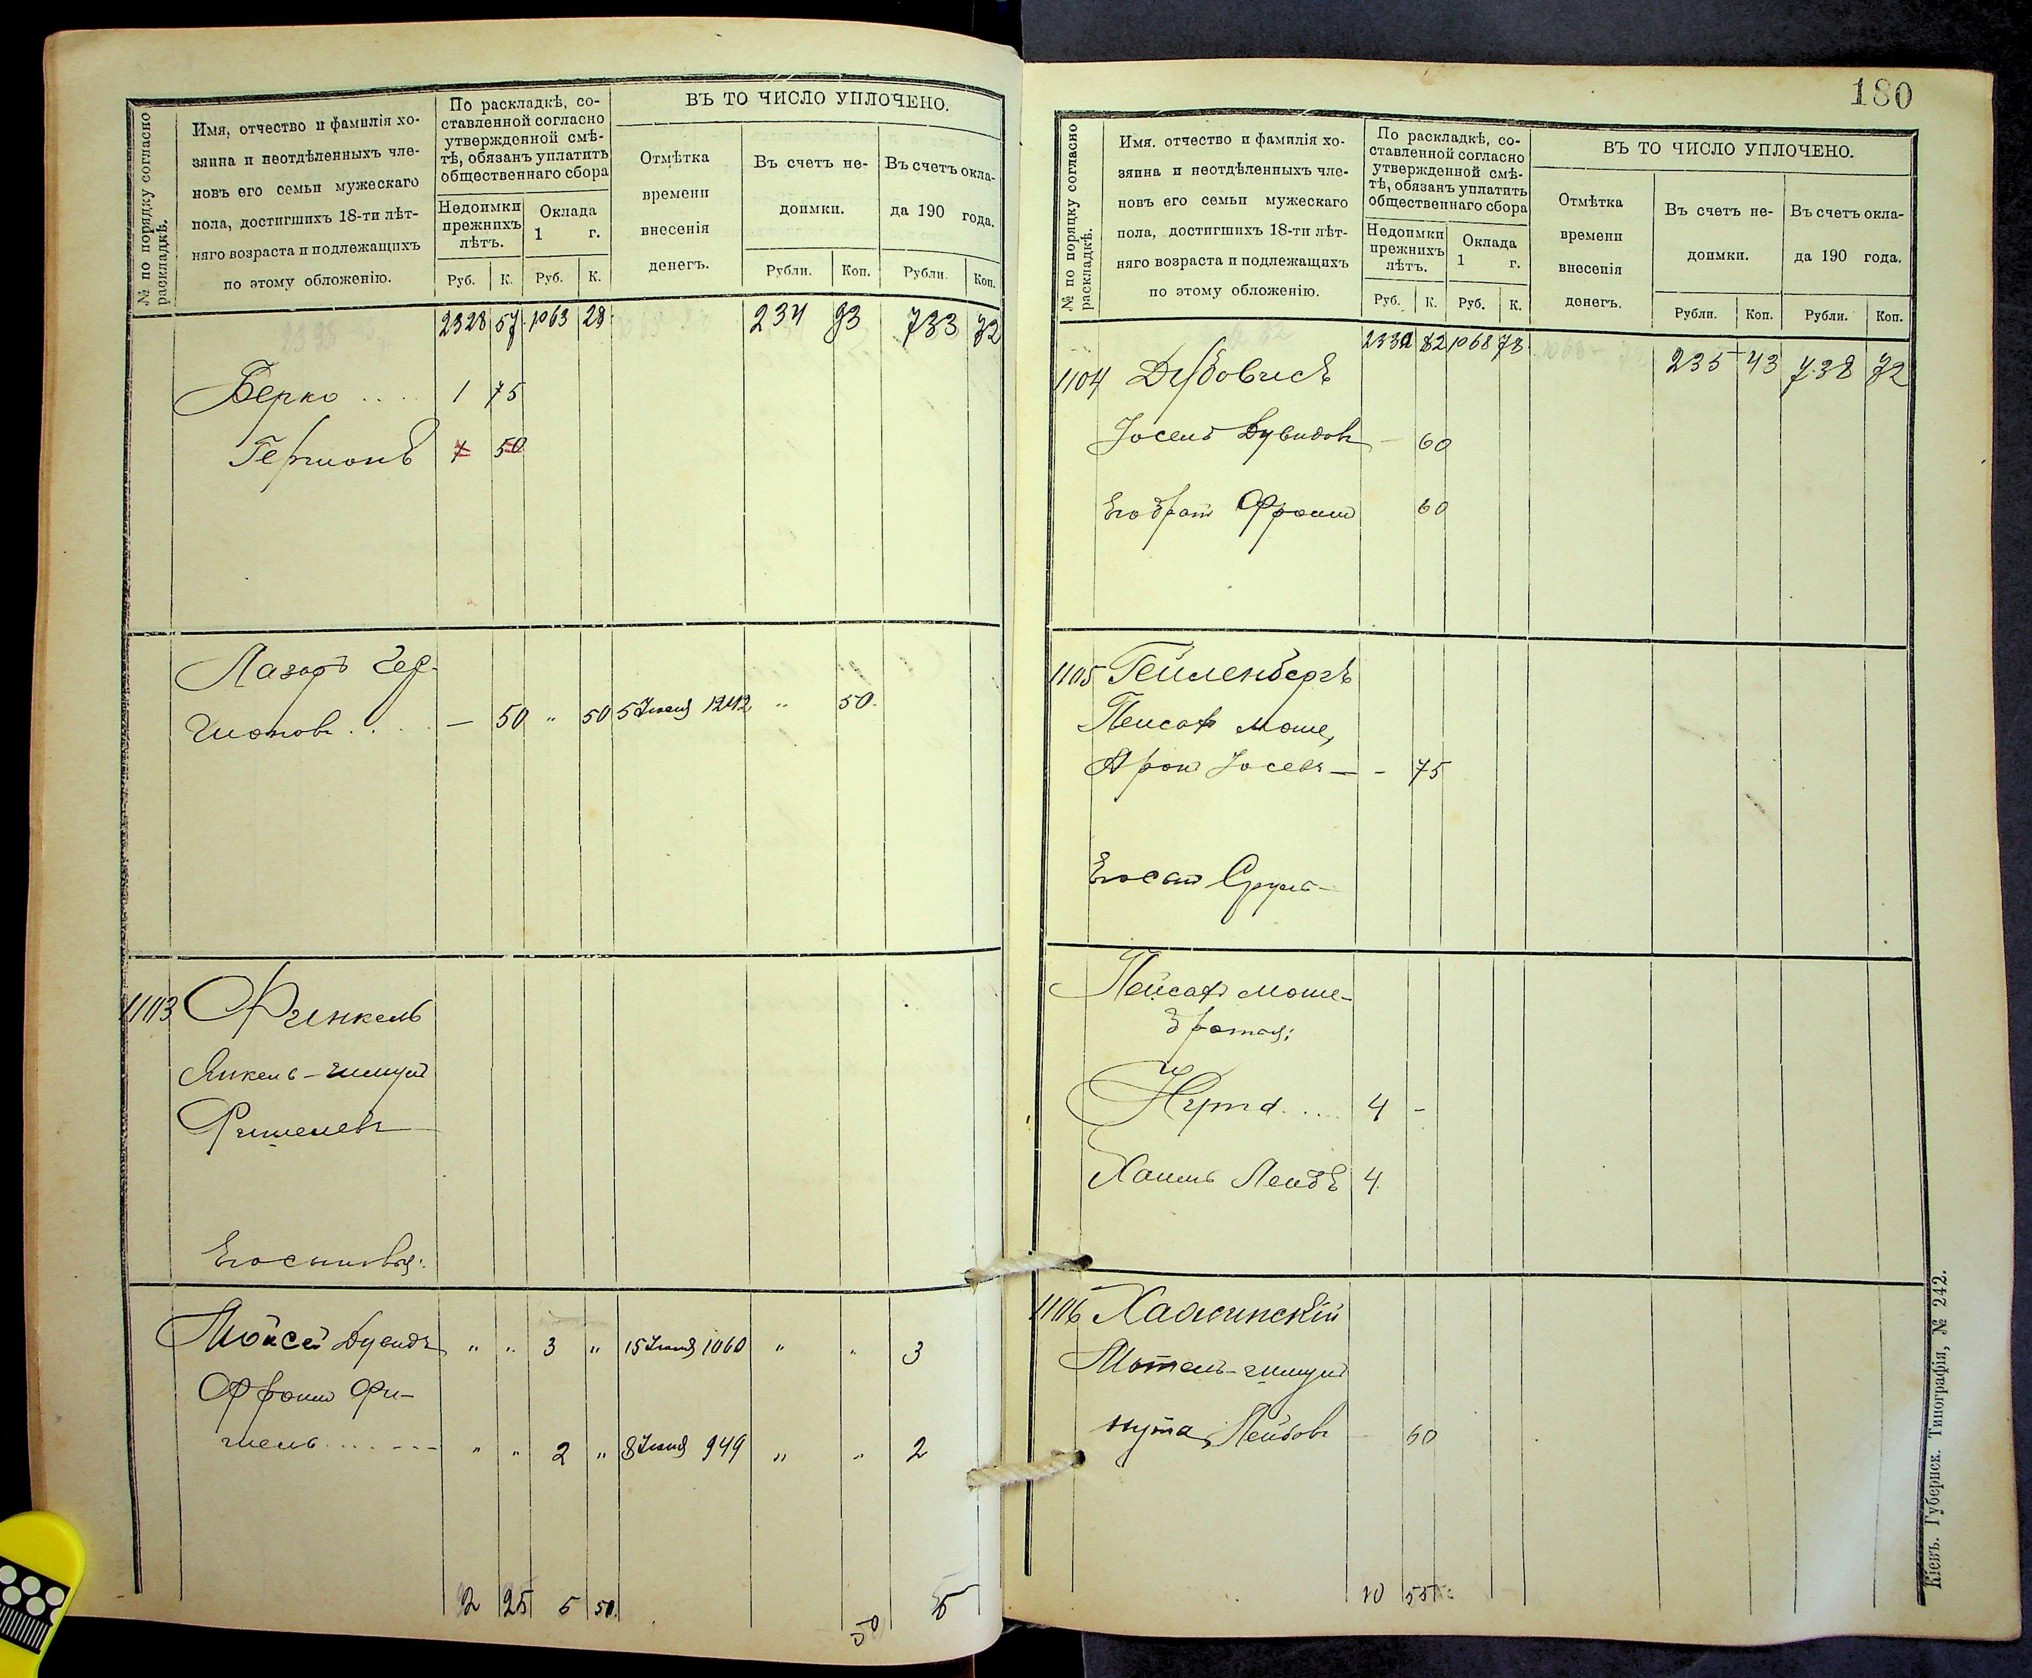 № по порядку согласно раскладкѣ.
Имя, отчество и фамилія хо-
зяина и неотдѣленныхъ чле-
новъ его семьи мужескаго
пола, достигшихъ 18-ти лѣт-
няго возраста и подлежащихъ
по этому обложенію.
По раскладкѣ, со-
ставленной согласно
утвержденной смѣ-
тѣ, обязанъ уплатить
общественнаго сбора
Недоимки
прежнихъ
лѣтъ.
Оклада
1 г.
Руб. К. Руб. К.
ВЪ ТО ЧИСЛО УПЛОЧЕНО.
Отмѣтка
времени
внесенія
денегъ.
Въ счетъ не-
доимки.
Въ счетъ окла-
да 190 года.
Рубли. Коп. Рубли. Коп.
2328 57 1063 28 234 93 733 72
Берко .... 1 75
Гершонъ 1 50
Лазарь Гер-
шонов. .... — 50 " 50 5 Іюня 1242 " 50.
1103 Финкель
Янкель-
Фишелевъ
Его сыновья:
Мойсей Дувидъ " " 3 " 15 Іюня 1060 " " 3
Фроимъ Фи-
шель ....... " " 2 " 8 Іюня 949 " " 2
2 25 5 50. 50 5
180
№ по порядку согласно раскладкѣ.
Имя. отчество и фамилія хо-
зяина и неотдѣленныхъ чле-
новъ его семьи мужескаго
пола, достигшихъ 18-ти лѣт-
няго возраста и подлежащихъ
по этому обложенію.
По раскладкѣ, со-
ставленной согласно
утвержденной смѣ-
тѣ, обязанъ уплатить
общественнаго сбора
Недоимки
прежнихъ
лѣтъ.
Оклада
1 г.
Руб. К. Руб. К.
ВЪ ТО ЧИСЛО УПЛОЧЕНО.
Отмѣтка
времени
внесенія
денегъ.
Въ счетъ не-
доимки.
Въ счетъ окла-
да 190 года.
Рубли. Коп. Рубли. Коп.
82 1068 78 235 43 738 72
1104 Дубовисъ
Іосель Дувидов — 60
Его братъ Фроимъ 60
1105 Гейленбергъ
Пейсахъ Моше,
Аронъ Іосевъ — - 75
Его сынъ Сруль —
Пейсахъ Моше —
братья:
Нута .... 4 -
Хаимъ Лейбъ 4
1106
Мотель-
Нута Лейбовъ 60
10 55
Кіевъ. Губернск. Типографія, № 242.